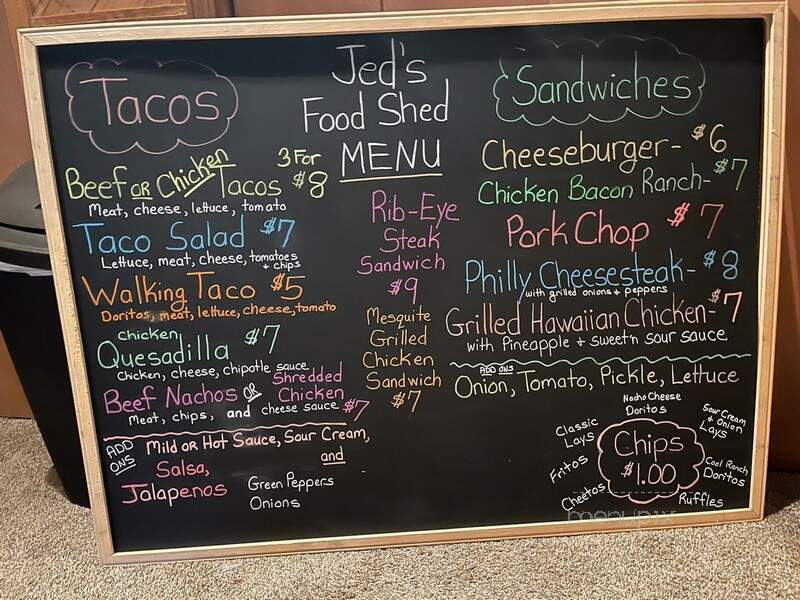 Jed's
Food Shed
MENU
Tacos
3 For
Beef OR Chicken Tacos $8
Meat, cheese, lettuce, tomato
Taco Salad $7
Lettuce, meat, cheese, tomatoes
+ chips
Walking Taco $5
Doritos, meat, lettuce, cheese, tomato
chicken
Quesadilla $7
Chicken, cheese, chipotle sauce
Beef Nachos OR Shredded
Chicken
Meat, chips, and cheese sauce $7
ADD
ONS
Mild OR Hot Sauce, Sour Cream,
and
Salsa,
Jalapenos
Green Peppers
Onions
Rib-Eye
Steak
Sandwich
$9
Mesquite
Grilled
Chicken
Sandwich
$7
Sandwiches
Cheeseburger- $6
Chicken Bacon Ranch- $7
Pork Chop $7
Philly Cheesesteak- $8
with grilled onions + peppers
Grilled Hawaiian Chicken- $7
with Pineapple + sweet'n sour sauce
ADD ONS
Onion, Tomato, Pickle, Lettuce
Chips
$1.00
Classic
Lays
Fritos
Cheetos
Nacho Cheese
Doritos
Sour Cream
& Onion
Lays
Cool Ranch
Doritos
Ruffles
menupix